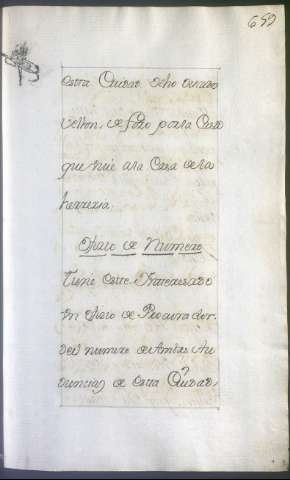 659
esta Ciudad ocho ducados
Vellon, de foro por la Casa
que hiuo a la Casa de la
herreria.
Ofizio de Numero
Tiene este Ynteresado
Un ofizio de Procurador
del numero de Ambas Au
diencias de esta Ciudad,